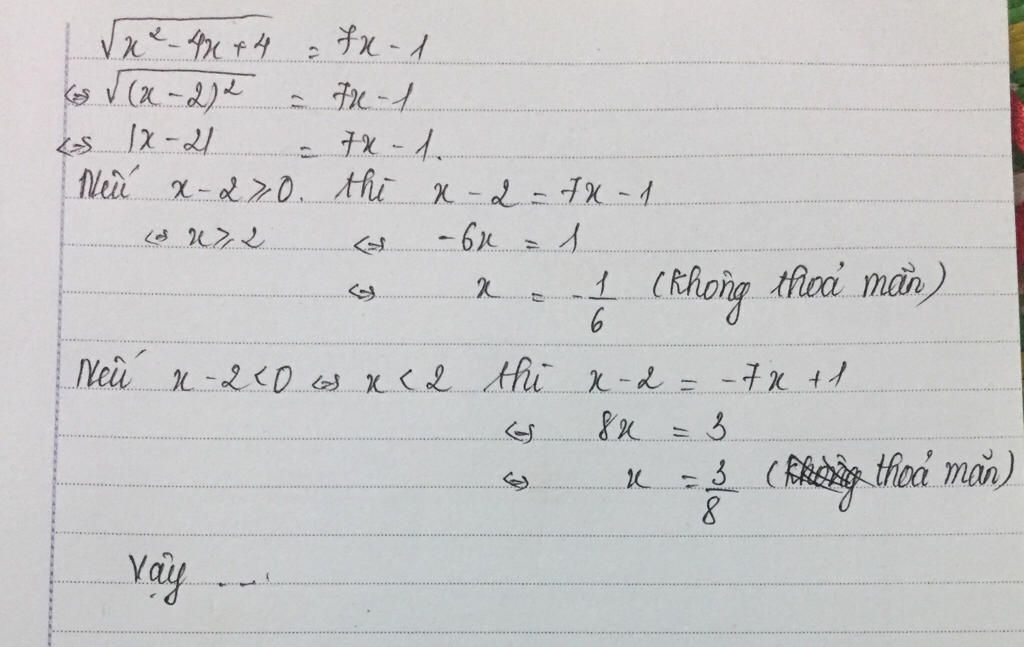 √(x² - 4x + 4) = 7x - 1
⇔ √((x - 2)²) = 7x - 1
⇔ |x - 2| = 7x - 1.
Nếu x - 2 ⩾ 0. thì x - 2 = 7x - 1
⇔ x ⩾ 2 ⇔ -6x = 1
⇔ x = -1/6 (không thoả mãn)
Nếu x - 2 < 0 ⇔ x < 2 thì x - 2 = -7x + 1
⇔ 8x = 3
⇔ x = 3/8 (không thoả mãn)
Vậy ....